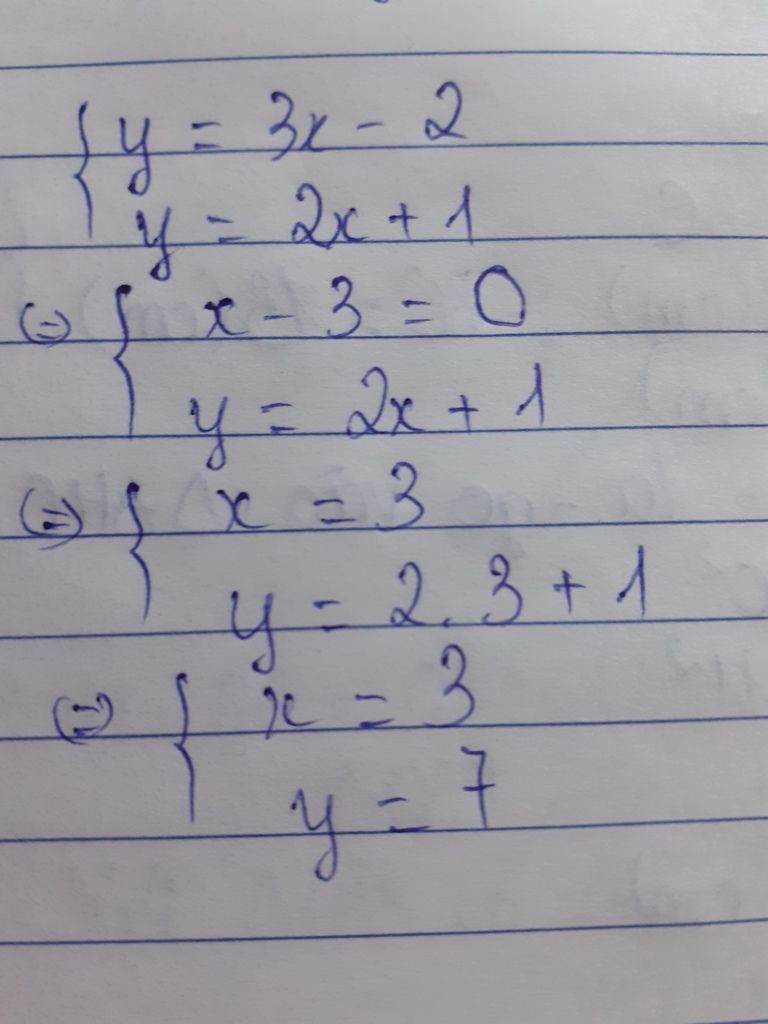 { y = 3x - 2
y = 2x + 1
⇔ { x - 3 = 0
y = 2x + 1
⇔ { x = 3
y = 2.3 + 1
⇔ { x = 3
y = 7